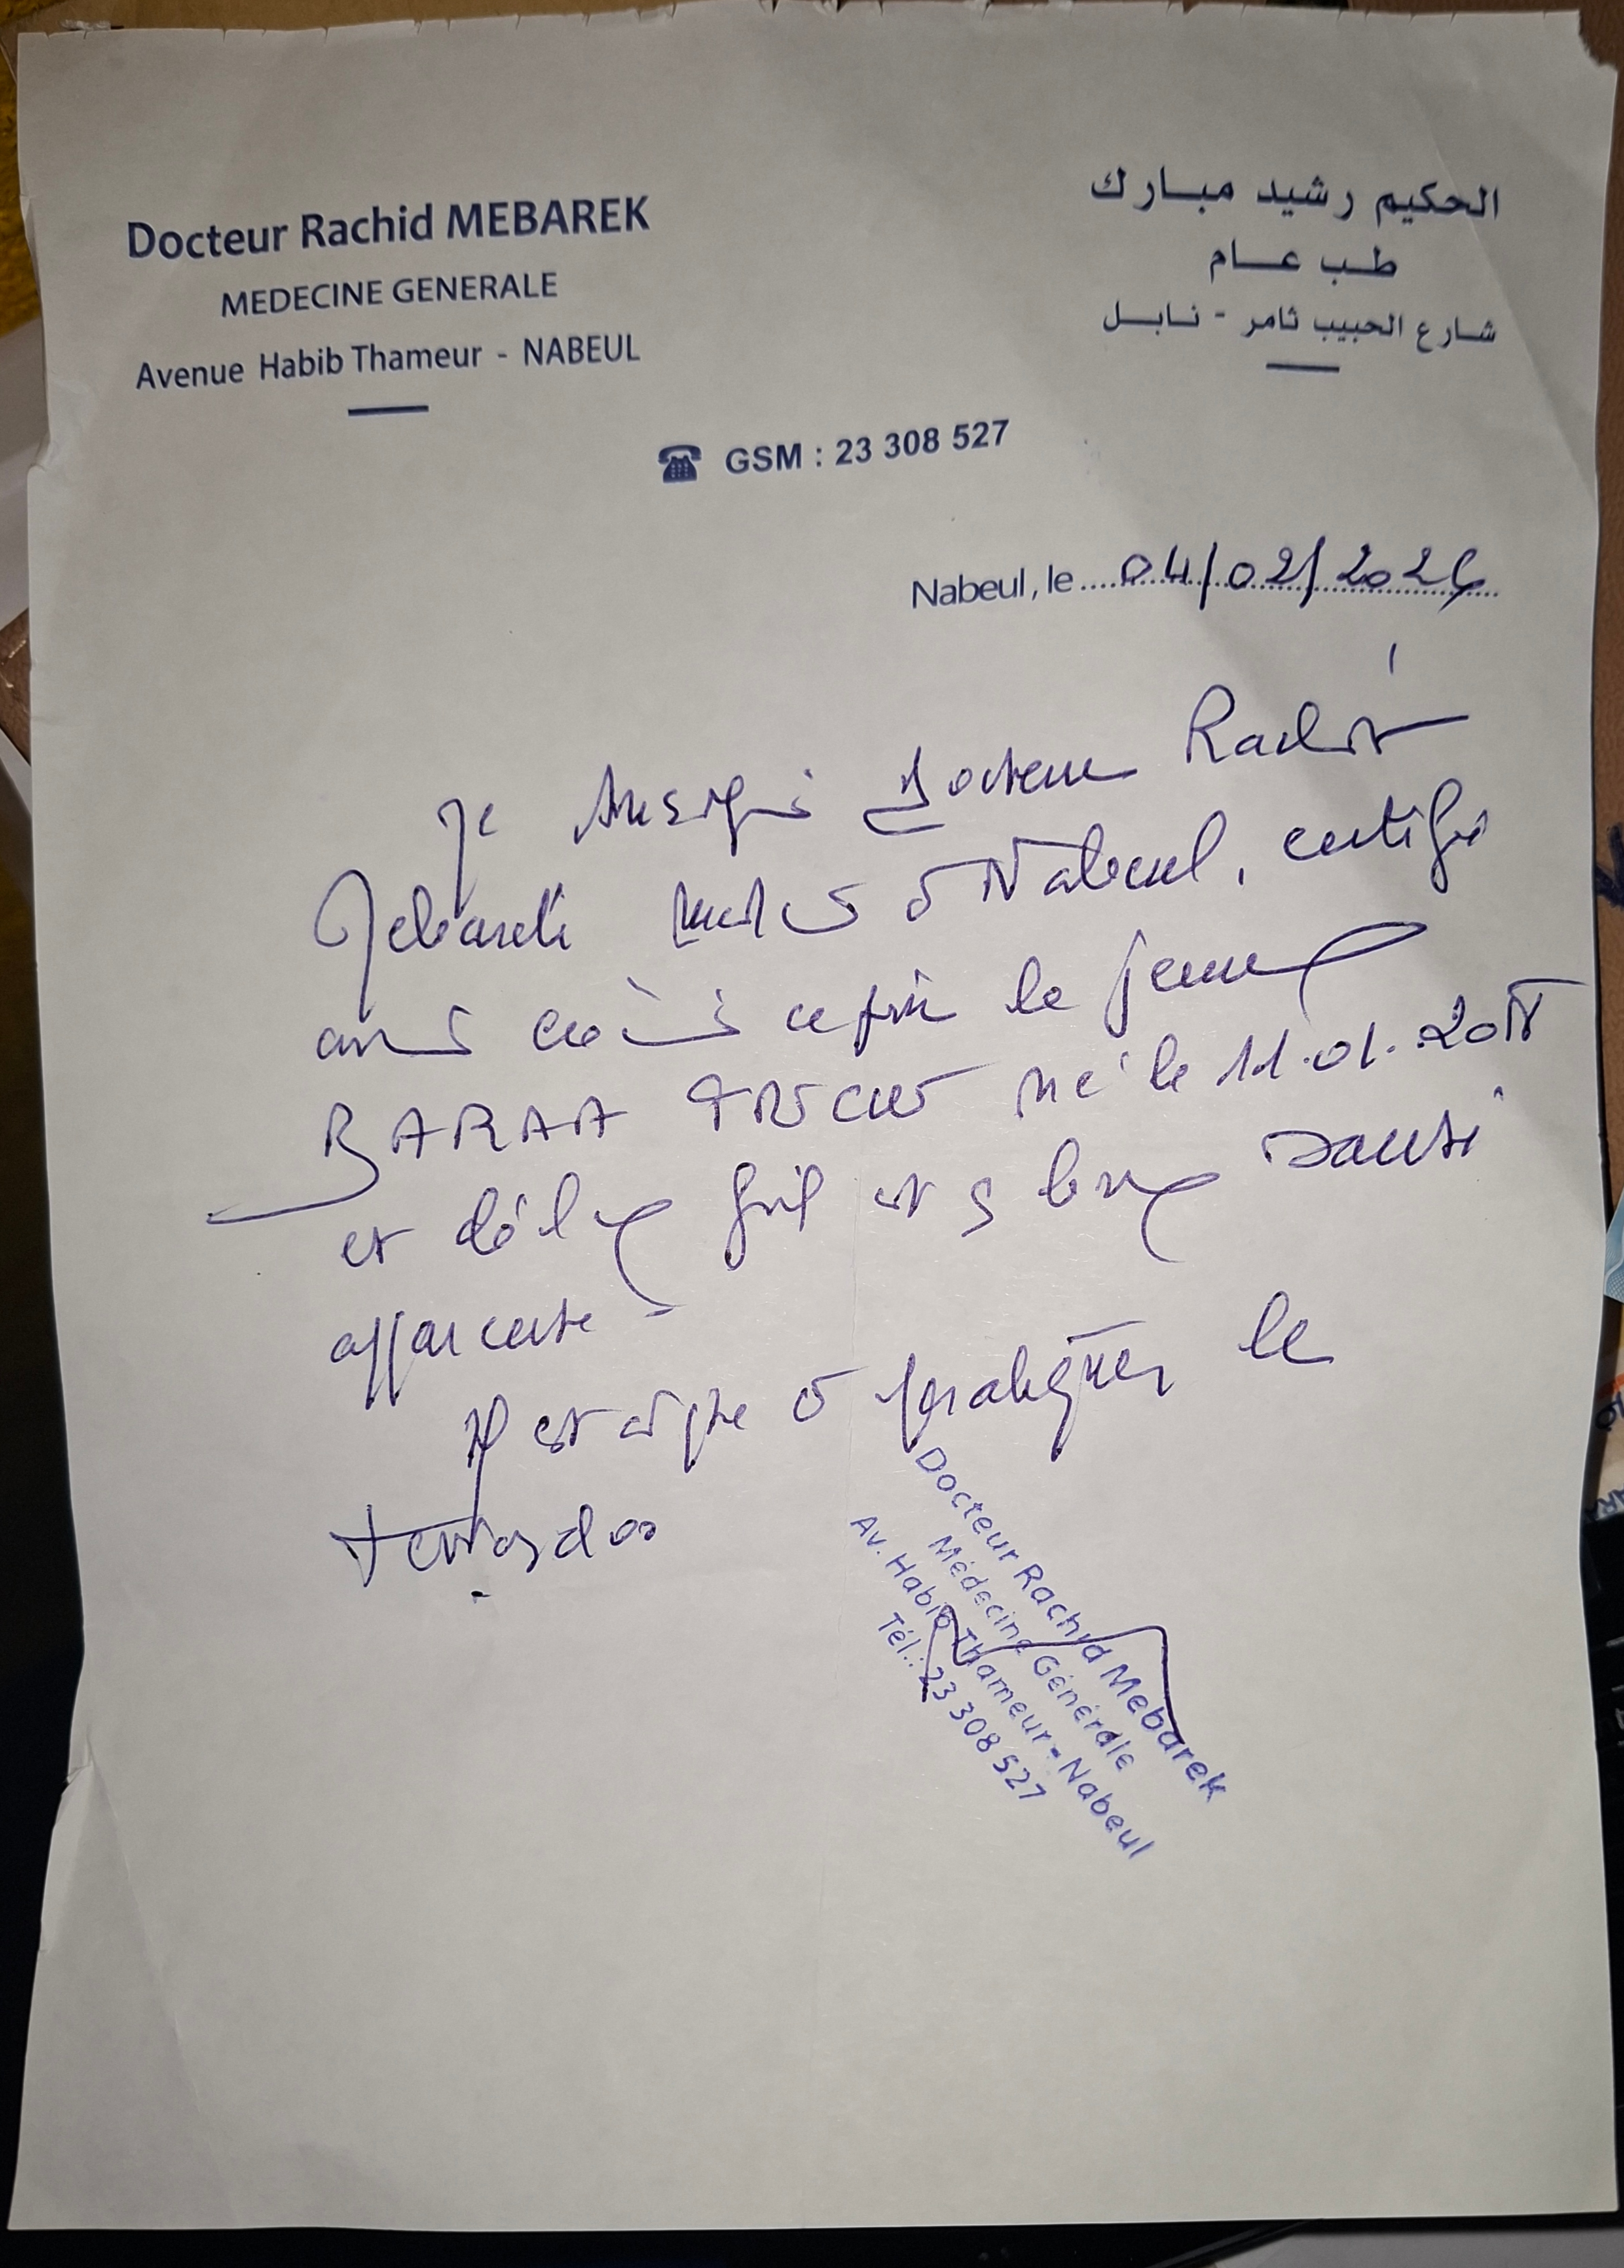 Docteur Rachid MEBAREK
MEDECINE GENERALE
Avenue Habib Thameur - NABEUL
الحكيم رشيد مبارك
طب عام
شارع الحبيب ثامر - نابل
GSM : 23 308 527
Nabeul, le 04/02/2026
Je soussigné Docteur Rachid
Mebarek médecin à Nabeul, certifie
avoir examiné ce jour le jeune
BARAA né le 11.01.201
et déclare qu'il est en bonne santé
apparente
Il est apte à pratiquer le
taekwondo
Docteur Rachid Mebarek
Médecine Générale
Av. Habib Thameur - Nabeul
Tél.: 23 308 527